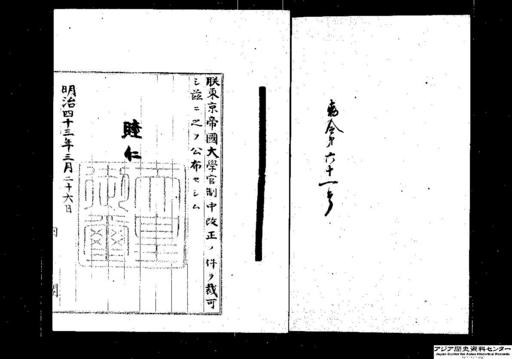 勅令第六十一号
朕東京帝國大學官制中改正ノ件ヲ裁可
シ茲ニ之ヲ公布セシム
睦仁
明治四十三年三月二十六日
アジア歴史資料センター
Japan Center for Asian Historical Records